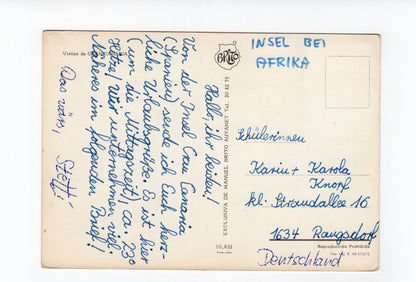 Vistas de GRAN CANARIA
Hallo, ihr beiden!
Von der Insel Gran Canaria
(Spanien) sende ich Euch herz-
liche Urlaubsgrüße. Es ist hier
(um die Mittagszeit) ca. 23°
Hitze! Wir unternehmen viel.
Näheres im folgenden Brief!
Das wärs,
Steffi
BRITO
EXCLUSIVA DE MANUEL BRITO AUYANET Tel. 20 42 75
10.632
INSEL BEI
AFRIKA
Schülerinnen
Karin + Karola
Knorf
kl. Strandallee 16
1634 Rangsdorf
Reproducción Prohibida
Deutschland